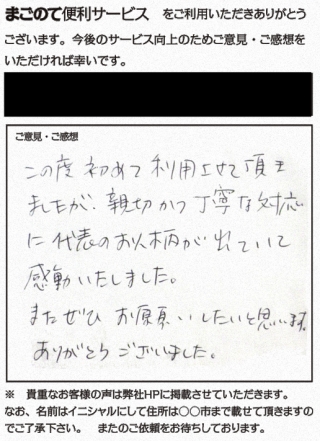 まごのて便利サービス をご利用いただきありがとう
ございます。今後のサービス向上のためご意見・ご感想を
いただければ幸いです。
ご意見・ご感想
この度 初めて 利用させて頂き
ましたが、親切かつ丁寧な対応
に代表のお人柄が出ていて
感動いたしました。
またぜひ お願いしたいと思います。
ありがとうございました。
※ 貴重なお客様の声は弊社HPに掲載させていただきます。
なお、名前はイニシャルにして住所は○○市まで載せて頂きますの
でご了承下さい。 またのご依頼をお待ちしております。